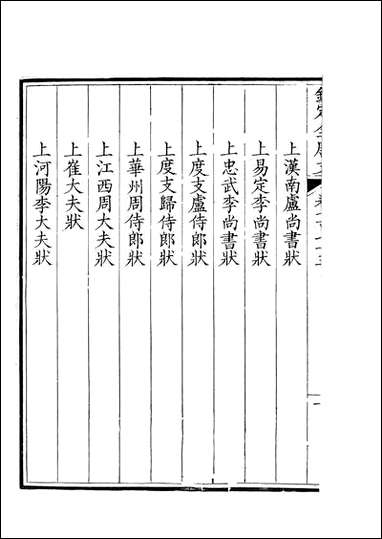 上漢南盧尚書狀
上易定李尚書狀
上忠武李尚書狀
上度支盧侍郎狀
上度支歸侍郎狀
上華州周侍郎狀
上江西周大夫狀
上崔大夫狀
上河陽李大夫狀